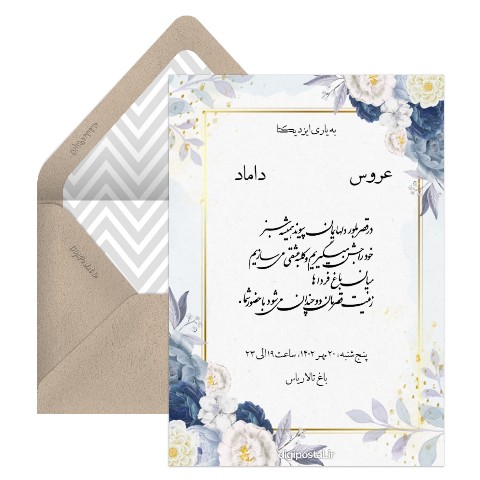 به یاری ایزد یکتا
عروس داماد
در قصر بلور دلهایمان پیوند همیشه سبز
خود را جشن میگیریم و کلبه عشقی می سازیم
میان باغ فرداها
زینت قصرمان دوچندان می شود با حضور شما.
پنج شنبه، ۲۰ مهر ۱۴۰۲، ساعت ۱۹ الی ۲۳
باغ تالار یاس
digipostal.ir
DigiPostal.ir
DigiPostal.ir